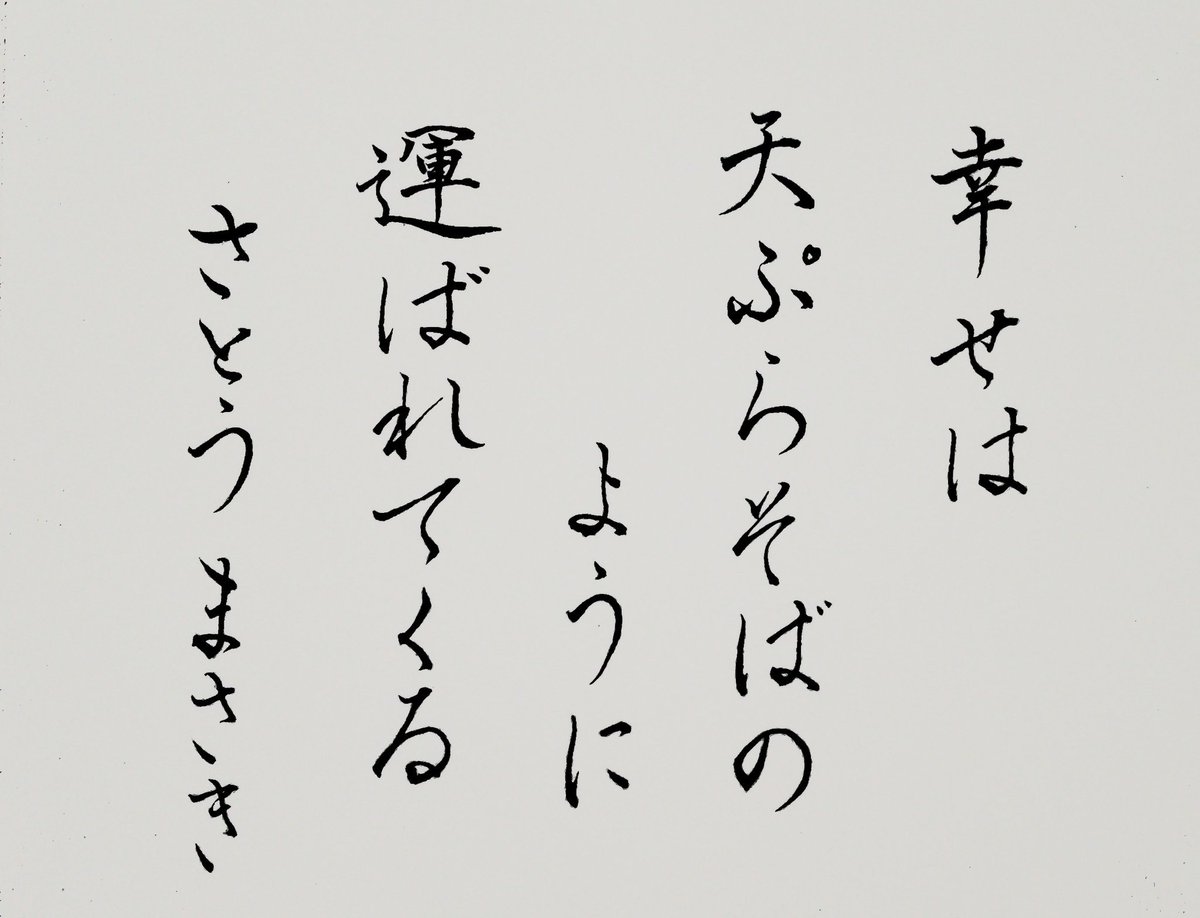 幸せは
天ぷらそばの
ように
運ばれてくる
さとう まさき